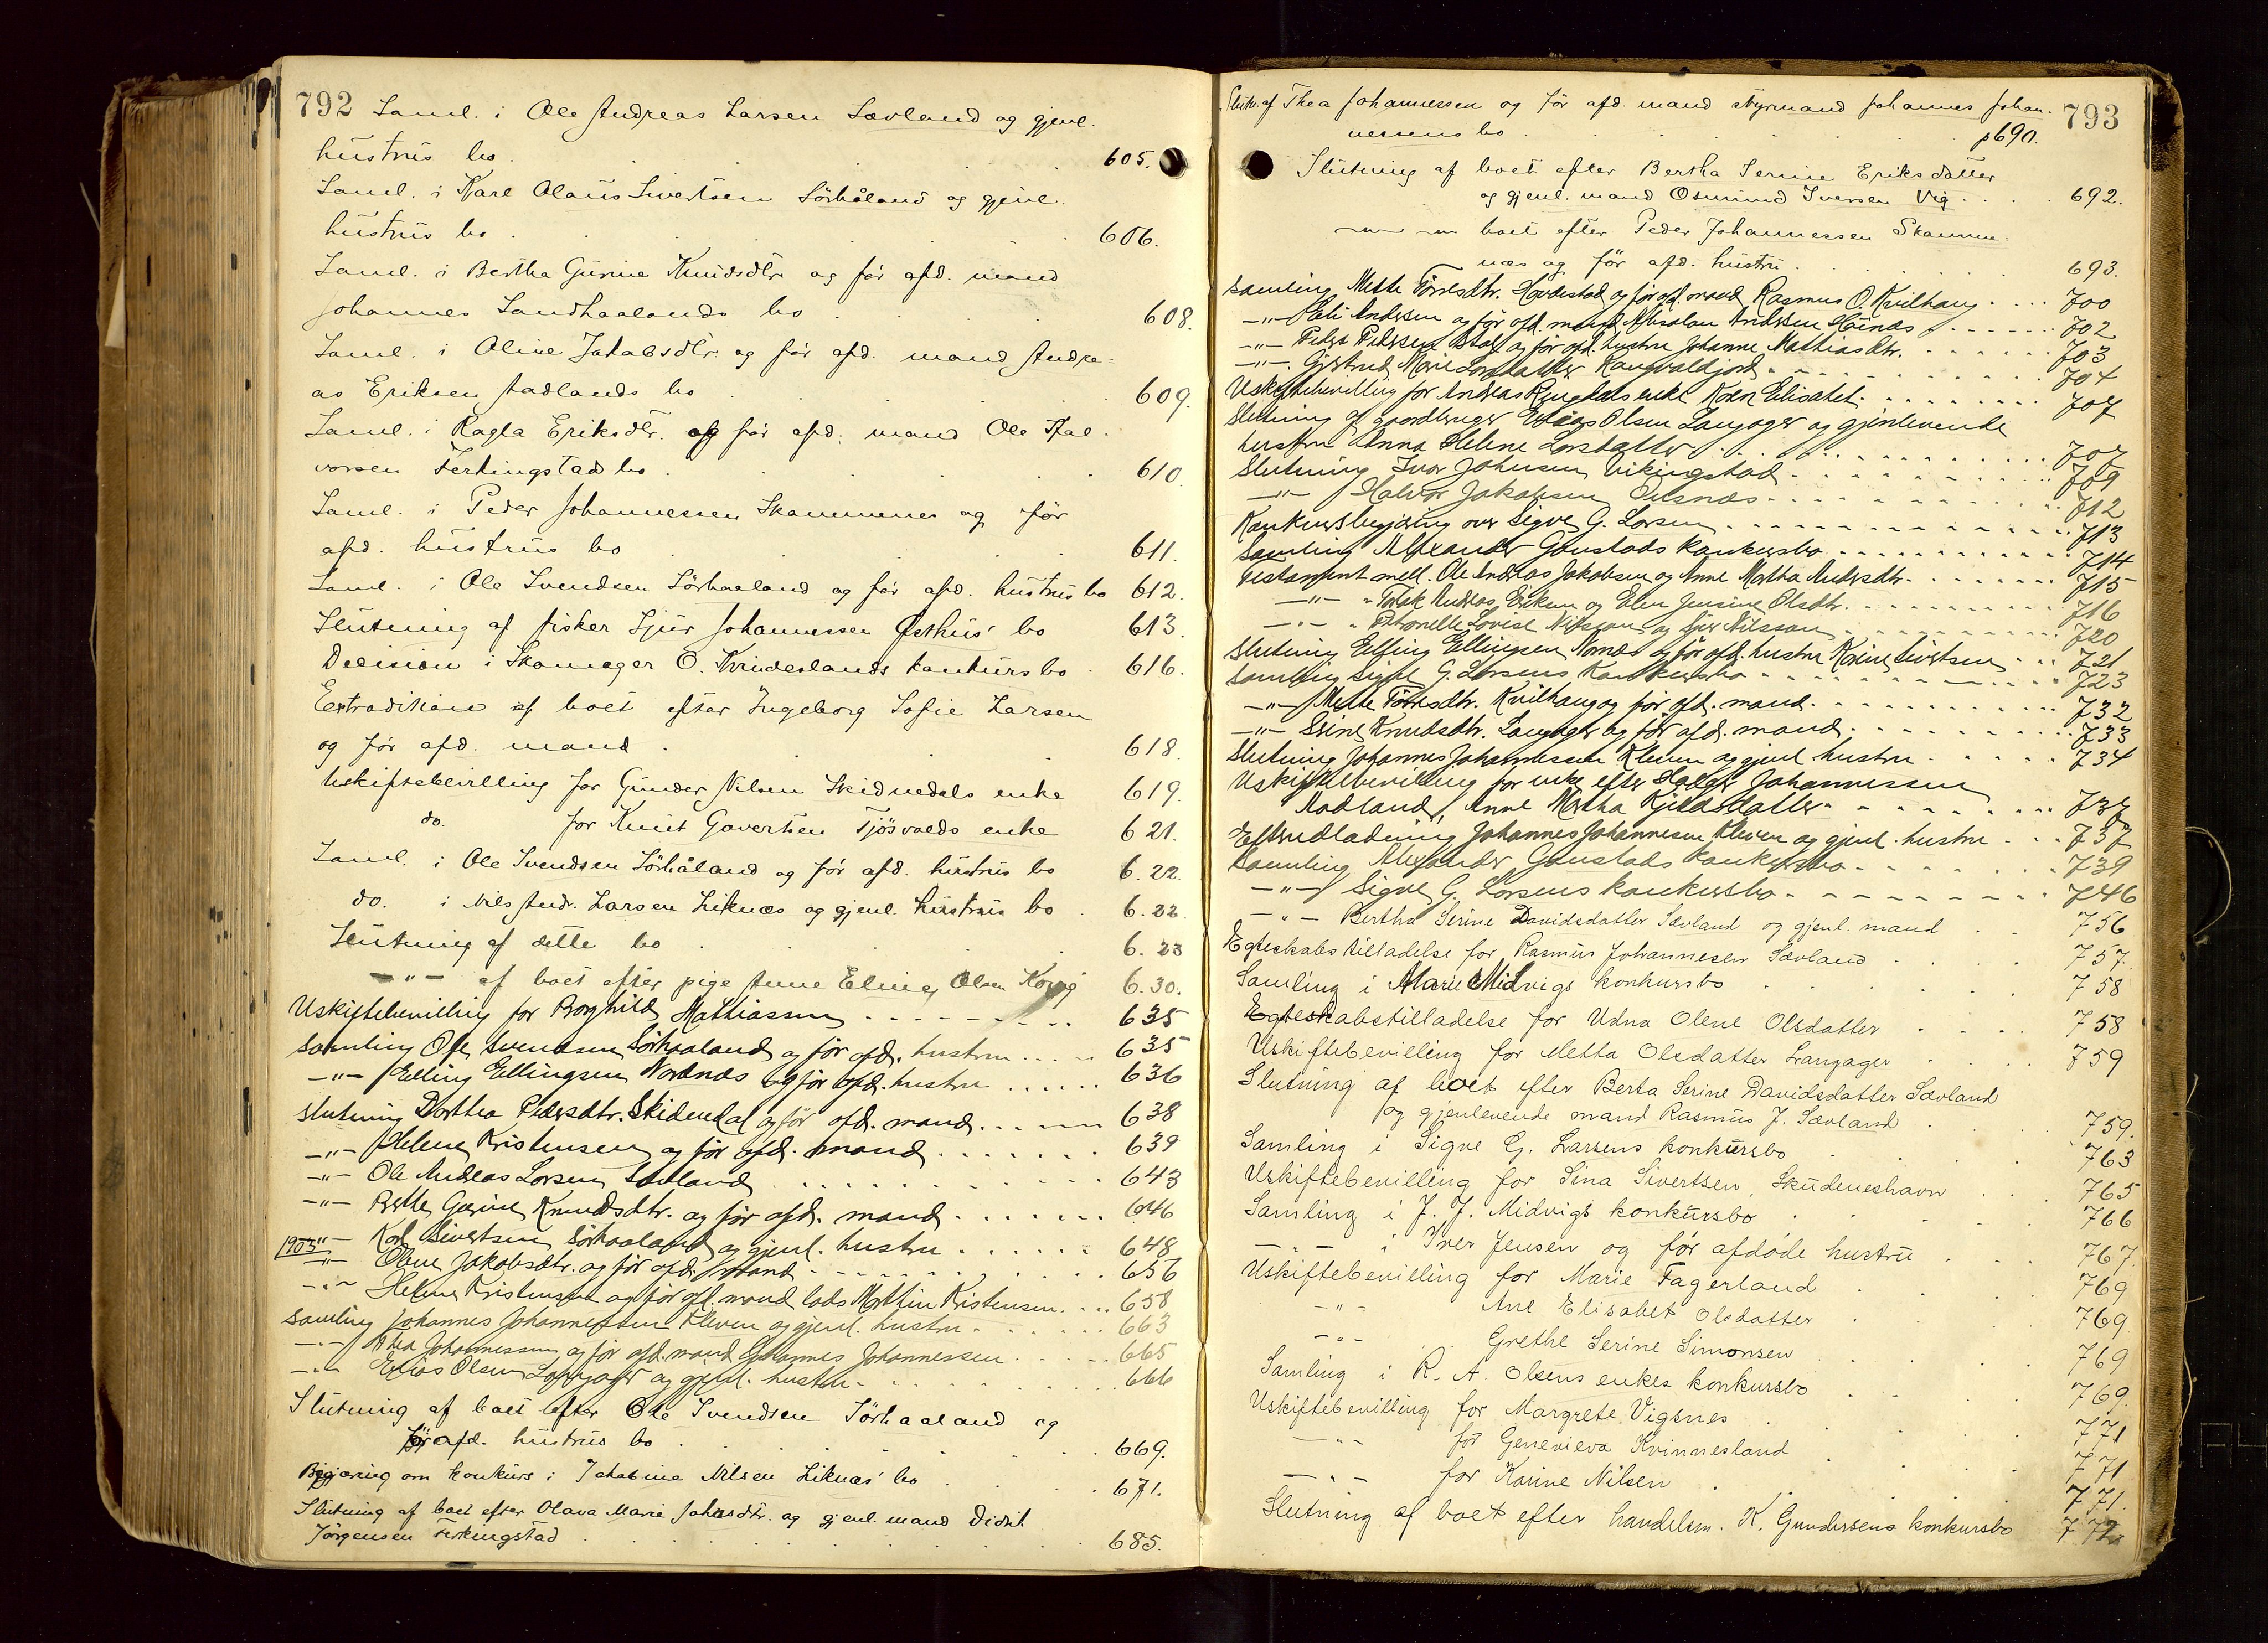 792 Saml. i Ole Andreas Larsen Sævland og gjenl.
hustrus bo . 605.
Saml. i Karl Olaus Sivertsen Sörhåland og gjenl.
hustrus bo . 606.
Saml. i Bertha Gurine Knudsdtr og før afd. mand
Johannes Sandhaalands bo . 608.
Saml. i Oline Jakobsdtr. og før afd. mand Andre-
as Eriksen Aadlands bo . 609.
Saml. i Ragla Eriksdtr. og før afd. mand Ole Hal-
vorsen Ferkingstads bo . 610.
Saml. i Peder Johannessen Skammenes og før
afd. hustrus bo 611.
Saml. i Ole Svendsen Sörhaaland og før afd. hustrus bo 612.
Slutning af fisker Sjur Johannessen Østhus' bo 613.
Decision i Skomager O. Kvindeslands konkursbo 616.
Extradition af boet efter Ingeborg Sofie Larsen
og før afd. mand . 618.
Uskiftebevilling for Gunder Nilsen Skidnedals enke 619.
do. for Knut Govertsen Tjösvolds enke 621.
Saml. i Ole Svendsen Sörhåland og før afd. hustrus bo 6.22.
do. i Nils Andr. Larsen Liknæs og gjenl. hustrus bo . 6.22.
Slutning af dette bo . 6.23
—"— af boet efter pige Anne Eling Olsen 6.30.
Uskiftebevilling for Borghild Mathiassen 635
Samling Ole Svendsen Sörhaaland og før afd. hustru 635
—"— Elling Ellingsen Nordnæs og før afd. hustru 636
Slutning Dorthea Pedersdtr. Skidnedal og før afd. mand 638
—"— Helene Kristensen og før afd. mand 639
—"— Ole Andreas Larsen Sævland 643
—"— Berthe Gurine Knudsdtr. og før afd. mand 646
1903 —"— Karl Sivertsen Sörhaaland og gjenl. hustru 648
—"— Oline Jakobsdtr. og før afd. mand 656
—"— Helene Kristensen og før afd. mand lods Mathin Kristensen 658
Samling Johannes Johannessen Kleven og gjenl. hustru 663
—"— Thea Johannessen og før afd. mand Johannes Johannessen 665
—"— Elias Olsen Langager og gjenl. hustru 666
Slutning af boet efter Ole Svendsen Sörhaaland og
før afd. hustrus bo . 669.
Begjæring om konkurs i Jakobine Nilsen Liknæs' bo 671.
Slutning af boet efter Olava Marie Johnsdtr. og gjenl. mand Didrik
Jörgensen Ferkingstad 685.
Slutn. af Thea Johannessen og før afd. mand styrmand Johannes Johan- 793
nessens bo . p690.
Slutning af boet efter Bertha Serine Eriksdatter
og gjenl. mand Osmund Iversen Vig 692.
—"— boet efter Peder Johannessen Skamme-
næs og før afd. hustru 693.
Samling Mette Tørresdtr. Hovdestad og før afd. mand Rasmus O. Kvilhaug 700
—"— Andersen og før afd. mand Absalon Andersen 702
—"— Peder Pedersen og før afd. hustru Johanne Mathiasdtr. 703
—"— Gjertrud Marie Larsdatter Rangvaldjord 704
Uskiftebevilling for Andreas Ringdals enke Koren Elisabet 707
Slutning af gaardbruger Elias Olsen Langager og gjenlevende
hustru Anna Helene Larsdatter 707
Slutning Ivar Johnsen Vikingstad 709
—"— Halvor Jakobsen 712
Konkursbegjæring over Sigve G. Larsen 713
Samling Alexander Gaustads konkursbo 714
Testament mell. Ole Andreas Jakobsen og Anne Martha Andersdtr. 715
—"— " Andreas Eriksen og Elen Jensine Olsdtr. 716
—"— " Lovise Nilsson og Nilsson 720
Slutning Elling Ellingsen Nornæs og før afd. hustru Karine Sivertsen 721
Samling Sigve G. Larsens konkursbo 723
—"— Mette Tørresdtr. Kvilhaug og før afd. mand 732
—"— Knudsdtr. Langager og før afd. mand 733
Slutning Johannes Johannessen Kleven og gjenl. hustru 734
Uskiftebevilling for enke efter Holger Johannessen
Aadland, Anne Martha 737
Efterudlodning Johannes Johannessen Kleven og gjenl. hustru 737
Samling Alexander Gaustads konkursbo 739
—"— Sigve G. Larsens konkursbo 746
—"— Bertha Serine Davidsdatter Sævland og gjenl. mand 756
Egteskabstilladelse for Rasmus Johannesen Sævland 757.
Samling i Marie Midvigs konkursbo 758
Egteskabstilladelse for Udna Olene Olsdatter 758
Uskiftebevilling for Metta Olsdatter Langager 759
Slutning af boet efter Berta Serine Davidsdatter Sævland
og gjenlevende mand Rasmus J. Sævland 759.
Samling i Sigve G. Larsens konkursbo 763
Uskiftebevilling for Sina Sivertsen, Skudeneshavn 765
Samling i J. J. Midvigs konkursbo 766
—"— i Iver Jensen og før afdøde hustru 767.
Uskiftebevilling for Marie Fagerland 769
—"— Ane Elisabet Olsdatter 769
—"— Grethe Serine Simonsen 769
Samling i R. A. Olsens enkes konkursbo 769.
Uskiftebevilling for Margrete Vigsnes 771
—"— for Genevieva Kvinnesland 771
—"— for Karine Nilsen 771.
Slutning af boet efter handelsm. K. Gundersens konkursbo 772